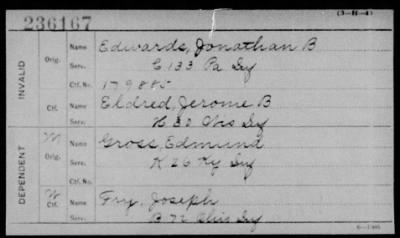 236167
(3-H-4)
INVALID
Orig. Name Edwards, Jonathan B
Serv. C 133 Pa Inf
Ctf. No. 179885
Ctf. Name Eldred, Jerome B
Serv. H 20 Ohio Inf
DEPENDENT
Orig. Name Gross, Edmund
Serv. K 26 Ky Inf
Ctf. No.
Ctf. Name Fry, Joseph
Serv. B 72 Ohio Inf